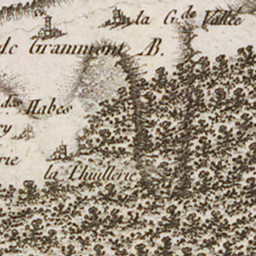 la G. de Vallée
de Grammont AB.
des Habes
ry
rie
la Thuillerie